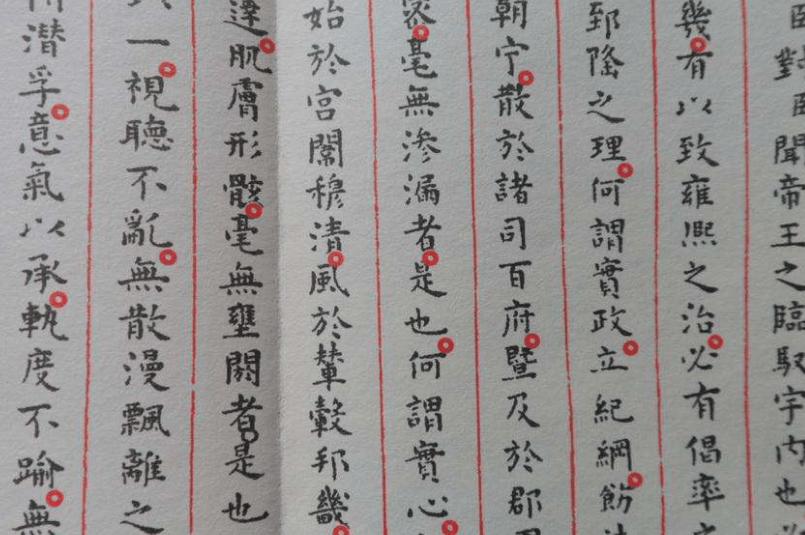 臣對臣聞帝王之臨馭宇內也
幾有以致雍熙之治必有倡率
郅隆之理何謂實政立紀綱飭
朝宁散於諸司百府暨及於郡
密毫無渗漏者是也何謂實心
始於宮闈穆清風於輦轂邦畿
達肌膚形骸毫無壅閼者是也
一視聽不亂無散漫飄離之
潛孚意氣以承執度不踰無